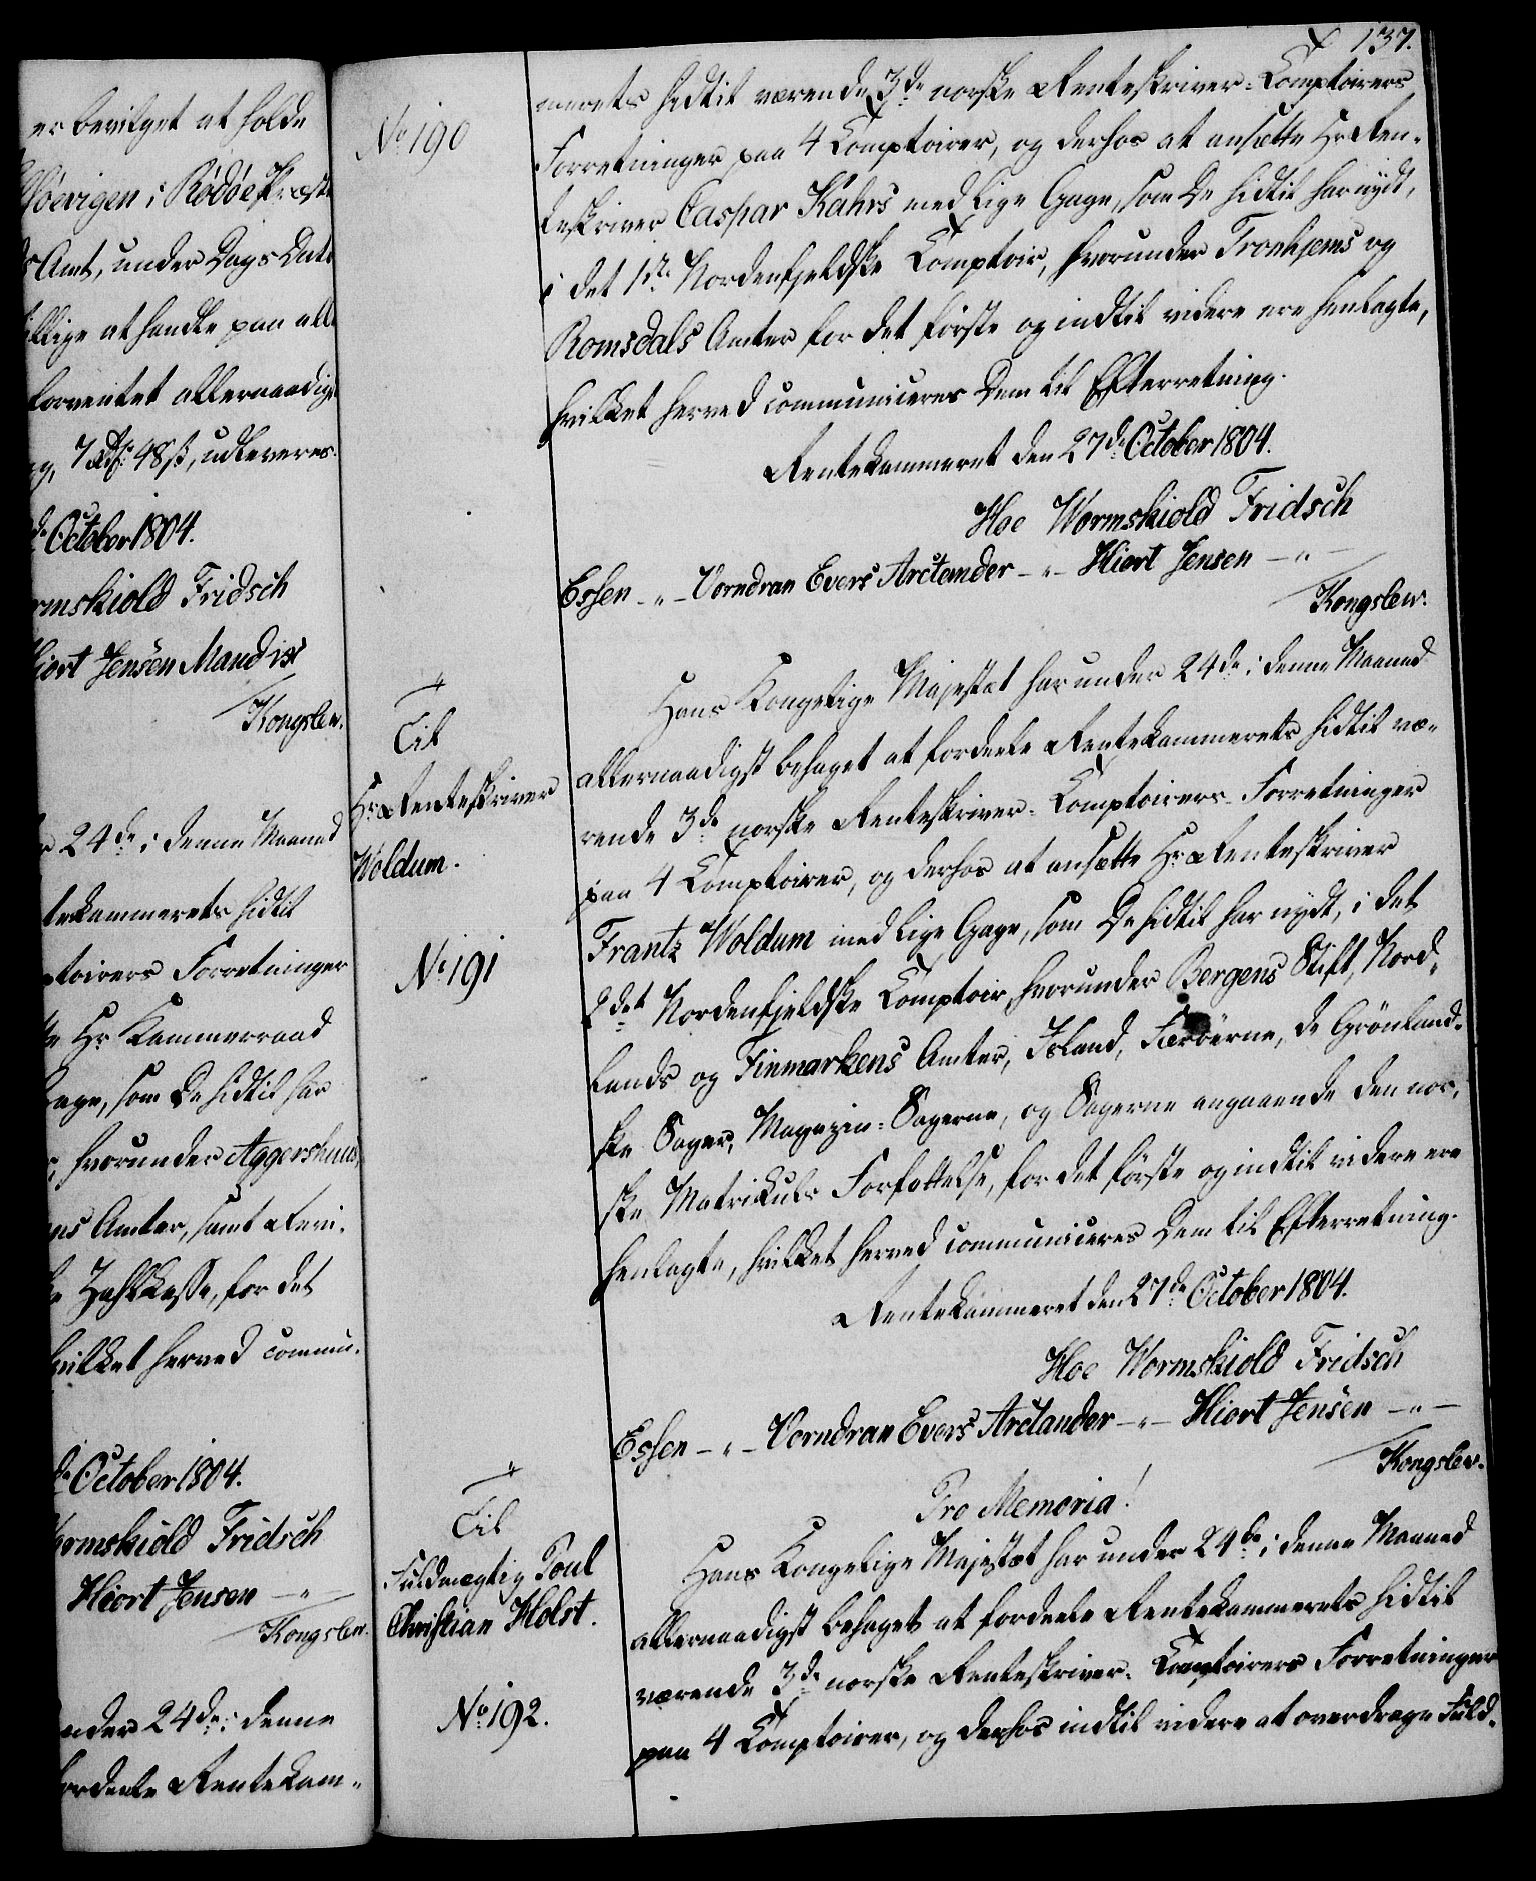 er bevilget at holde
i Rødøe Præste
Amt, under Dags Dato
at handle paa alle
forventet allernaadigst
7 Rdr: 48 ß, udleveres.
October 1804.
rmskiold Fridsch
Hiort Jensen Mandix
Kongslew.
24de i denne Maaned
tekammerets hidtil
ptoirers Forretninger
Hr. Kammerraad
Gage, som De hidtil har
hvorunder Aggershuus,
Amter, samt Revi-
Zahlkasse, for det
hvilket herved commu-
October 1804.
Wormskiold Fridsch
Hiort Jensen —"—
Kongslew.
under 24de i denne
fordeele Rentekam-
137.
No. 190
merets hidtil værende 3de norske Renteskriver-Comptoirers
Forretninger paa 4 Comptoirer, og derhos at ansætte Hr. Ren-
teskriver Caspar Kahrs med lige Gage, som De hidtil har nydt,
i det 1ste Nordenfjeldske Comptoir, hvorunder Tronhjems og
Romsdals Amter for det første og indtil videre ere henlagte,
hvilket herved communiceres Dem til Efterretning.
Rentekammeret den 27de October 1804.
Hoe Wormskiold Fridsch
Essen —"— Vorndran Evers Arctander —"— Hiort Jensen —"—
Kongslew.
Til
Hr. Renteskriver
Woldum.
No. 191
Hans Kongelige Majestæt har under 24de i denne Maaned
allernaadigst behaget at fordeele Rentekammerets hidtil væ-
rende 3de norske Renteskriver-Comptoirers Forretninger
paa 4 Comptoirer, og derhos at ansætte Hr. Renteskriver
Frantz Woldum med lige Gage, som De hidtil har nydt, i det
2det Nordenfjeldske Comptoir, hvorunder Bergens Stift, Nord-
lands og Finmarkens Amter, Island, Færöerne, de Grönland-
ske Sager, Magazin-Sagerne, og Sagerne angaaende den nor-
ske Matrikuls Forfattelse, for det første og indtil videre ere
henlagte, hvilket herved communiceres Dem til Efterretning.
Rentekammeret den 27de October 1804.
Hoe Wormskiold Fridsch
Essen —"— Vorndran Evers Arctander —"— Hiort Jensen —"—
Kongslew.
Til
Fuldmægtig Poul
Christian Holst.
No. 192.
Pro Memoria!
Hans Kongelige Majestæt har under 24de i denne Maaned
allernaadigst behaget at fordeele Rentekammerets hidtil
værende 3de norske Renteskriver-Comptoirers Forretninger
paa 4 Comptoirer, og derhos indtil videre at overdrage Fuld-